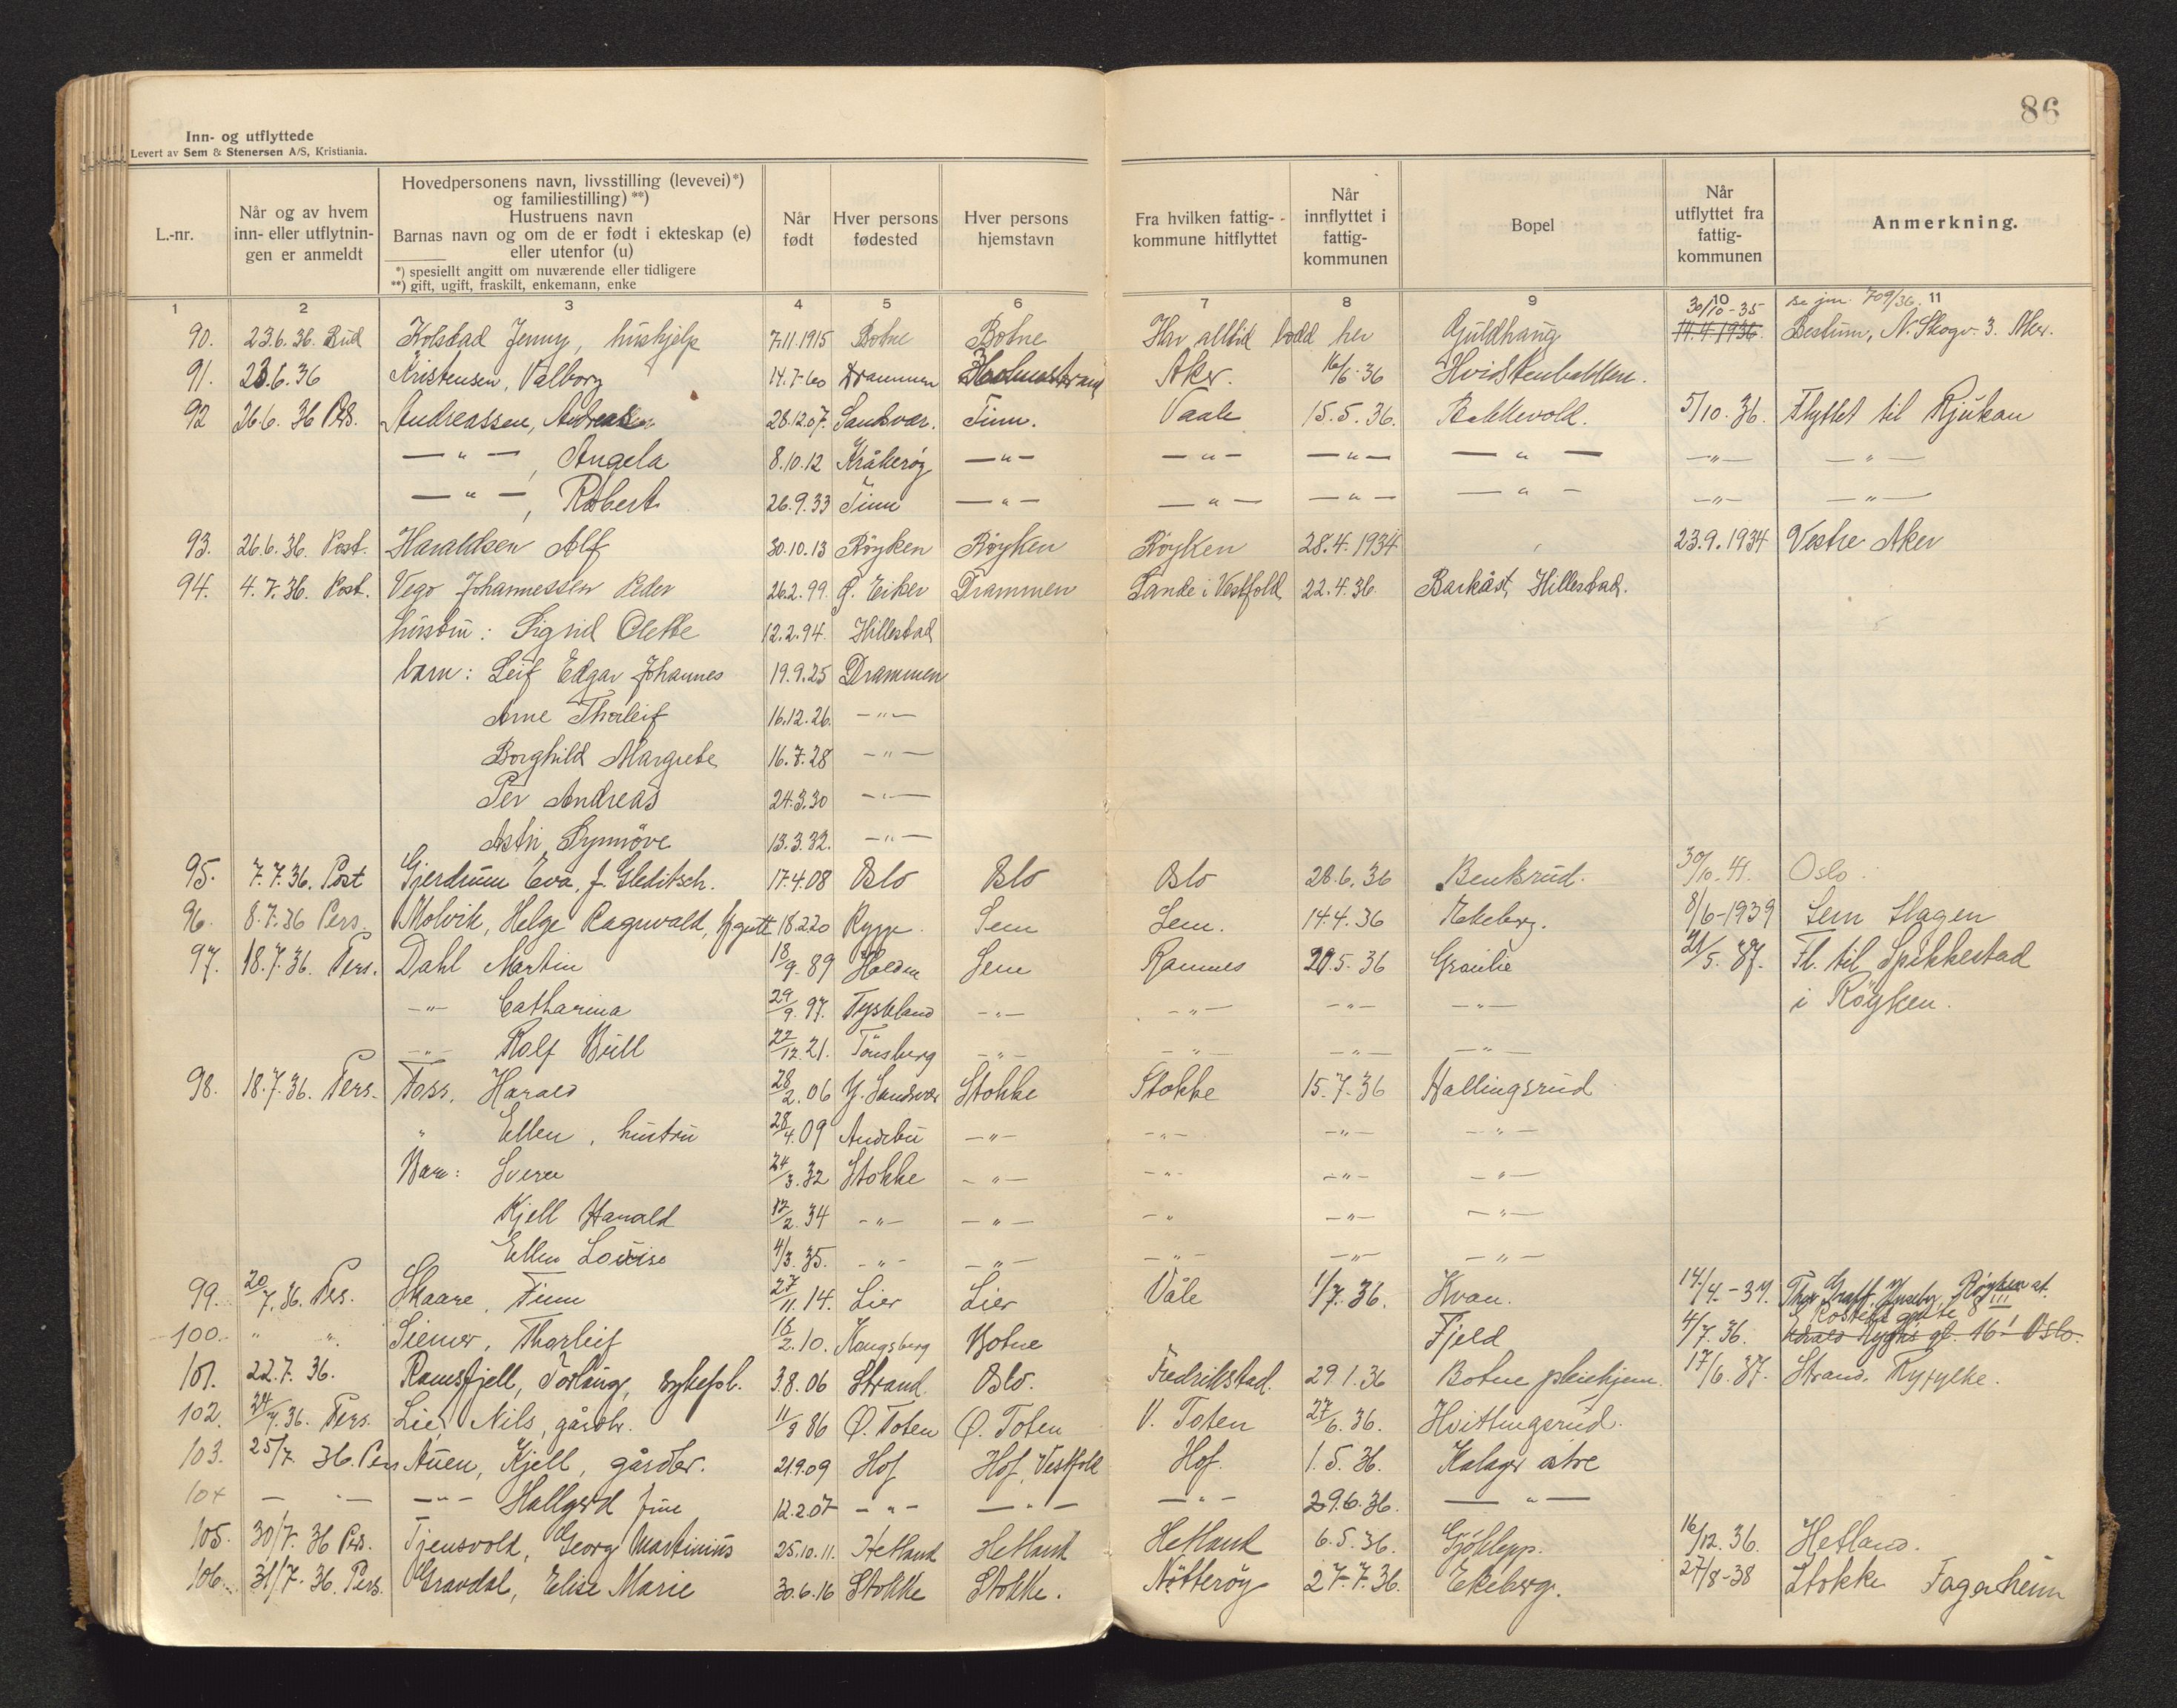 86
Inn- og utflyttede
Levert av Sem & Stenersen A/S, Kristiania.
L.-nr.
Når og av hvem inn- eller utflytnin- gen er anmeldt
Hovedpersonens navn, livsstilling (levevei)*)
og familiestilling) **)
Hustruens navn
Barnas navn og om de er født i ekteskap (e)
eller utenfor (u)
*) spesiellt angitt om nuværende eller tidligere
**) gift, ugift, fraskilt, enkemann, enke
Når født
Hver persons fødested
Hver persons hjemstavn
Fra hvilken fattig- kommune hitflyttet
Når innflyttet i fattig- kommunen
Bopel
Når utflyttet fra fattig- kommunen
Anmerkning.
1 2 3 4 5 6 7 8 9 10 11
30/10-35 se jnr. 709/36.
90. 23.6.36. Bud Kolstad Jenny, hushjelp 7.11.1915 Botne Botne Har alltid bodd her Guldhaug 14.4.1936. Bestum, N. Skogv. 3. Aker.
91. 23.6.36 Kristensen, Valborg 14.7-60 Drammen Holmestrand Aker. 16/6-36
92 26.6.36 Pers. Andreassen, Andreas 28.12.07. Sandsvær. Tinn. Vaale 15.5.36. Bakkevold. 5/10.36. Flyttet til Rjukan
—"—, Angela 8.10.12 Kråkerøy —"— —"— —"— —"— —"— —"—
—"—, Robert 26.9.33 Tinn —"— —"— —"— —"— —"— —"—
93. 26.6.36. Post. Haraldsen Alf 30.10.13 Røyken Røyken Røyken 28.4.1934 " 23.9.1934 Vestre Aker
94. 4.7.36. Post. Vego Johannessen Peder 26.2.99. Ø. Eiker Drammen Sande i Vestfold 22.4.36. Barkåst, Hillestad.
hustru: Sigrid Olette 12.2.94. Hillestad
barn: Leif Edgar Johannes 19.9.25 Drammen
Arne Thorleif 16.12.26. —"—
Borghild Margrete 16.7.28 —"—
Per Andreas 24.3.30 —"—
Astri Synnöve 13.3.32. —"—
95. 7.7.36. Post Gjerdrum Eva, f. Gleditsch. 17.4.08 Oslo Oslo Oslo 28.6.36 Bentsrud. 30/10.41. Oslo.
96. 8.7.36 Pers. Molvik, Helge Ragnvald, 18.2.20 Rygge. Sem Sem. 14.4.36 Ekeberg. 8/6-1939 Sem Slagen
97. 18.7.36. Pers. Dahl Martin 18/9.89 Halden Sem Ramnes 20.5.36 Granlie 21/5.37. Fl. til Spikkestad
—"— Catharina 29/9.97. Tyskland —"— —"— —"— —"— i Røyken.
—"— Rolf Bull 22/12.21. Tönsberg —"— —"— —"— —"—
98. 18.7.36. Pers. Foss. Harald 28/2.06 Y. Sandsvær Stokke Stokke 15.7.36 Hallingsrud
" Ellen, hustru 28/4.09 Andebu —"— —"— —"— —"—
Barn: Sverre 24/3.32 Stokke —"— —"— —"— —"—
Kjell Harald 12/2.34 —"— —"— —" —"— —"—
Ellen Louise 4/3.35. —"— —"— —"— —"— —"—
99. 20/7.36. Pers. Skaare, Finn 27/11.14. Lier Lier Våle 1/7.36. Kvan. 14/4.-37. Thor Graff, Huseby, Røyken st.
100. " " Siemer, Thorleif 18/2.10. Kongsberg Botne Fjeld 4/7.36. gt. 16 I Oslo.
101. 22.7.36. Ramsfjell, Torlaug, sykepl. 3.8.06 Strand. Oslo. Fredrikstad. 29.1.36 Botne pleiehjem. 17/6.37. Strand. Ryfylke.
102. 24/7.36. Pers. Lie, Nils, gårdbr. 11/3 86 Ø. Toten Ø. Toten V. Toten 27/6.36. Hvittingsrud.
103. 25/7. 36. Pers Auen, Kjell, gårdbr. 21.9.09 Hof Hof, Vestfold Hof. 1.5.36. Kalager østre
104 — " — —"— Hallgerd frue 12.2.07 —"— —"— —"— 29.6.36. —"—
105. 30/7. 36 Pers. Tjensvold, Georg Martinius 25.10.11. Hetland Hetland Hetland 6.5.36. Gjöklepp. 16/12.36. Hetland.
106. 31/7.36. Pers. Gravdal, Elise Marie 30.6.16 Stokke Stokke. Nøtterøy 27.7.36. Ekeberg. 27/8-38 Stokke Fagerheim